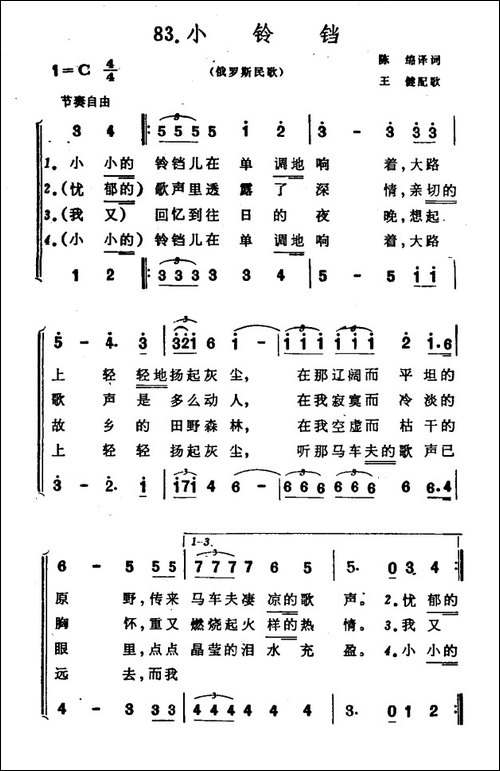 83.小铃铛
1=C 4/4
(俄罗斯民歌)
陈绵译词
王健配歌
节奏自由
3 4 5 5 5 5 5 1 2 3 - 3 3 3
1. 小小的铃铛儿在单调地响着,大路
2.(忧郁的)歌声里透露了深情,亲切的
3.(我又)回忆到往日的夜晚,想起
4.(小小的)铃铛儿在单调地响着,大路
1 2 3 3 3 3 3 3 4 5 - 5 1 1
5 - 4. 3 3 2 1 6 1 - 1 1 1 1 1 1 2 1.6
上轻轻地扬起灰尘,在那辽阔而平坦的
歌声是多么动人,在我寂寞而冷淡的
故乡的田野森林,在我空虚而枯干的
上轻轻扬起灰尘,听那马车夫的歌声已
3 - 2. 1 1 7 1 4 6 - 6 6 6 6 6 6 6 6.4
1-3.
6 - 5 5 5 7 7 7 7 6 6 5. 0 3. 4
原野,传来马车夫凄凉的歌声。2.忧郁的
胸怀,重又燃烧起火样的热情。3.我又
眼里,点点晶莹的泪水充盈。4.小小的
远去,而我
4 - 3 3 3 4 4 4 4 4 4 3. 0 1 2